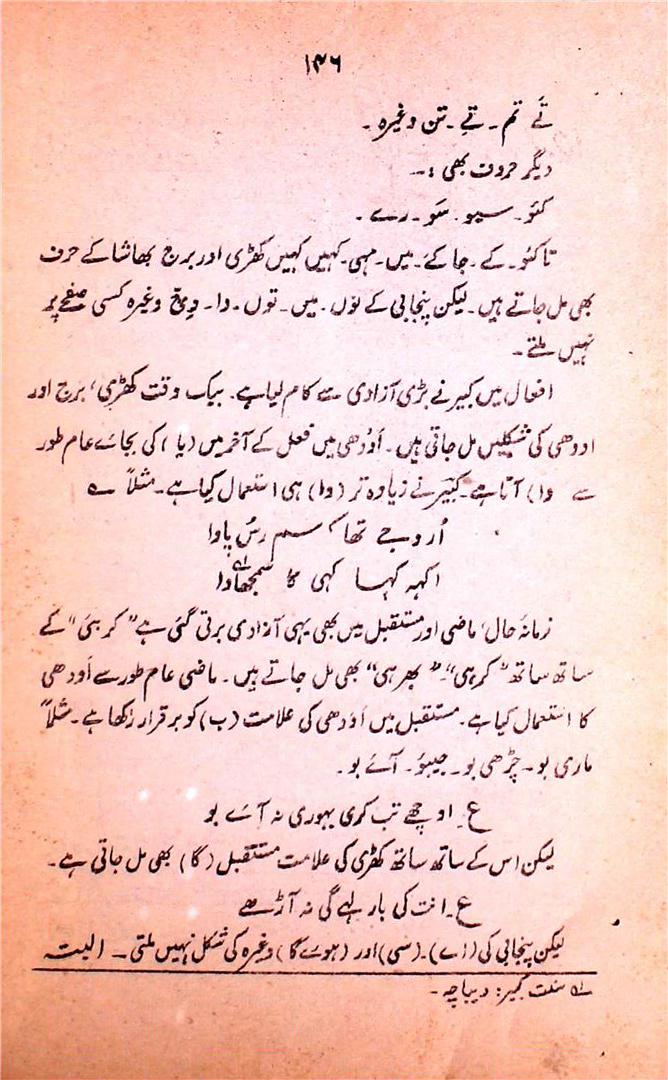 ۱۴۶
تَے تم ۔ تے ۔ تن وغیرہ ۔
دیگر حروف بھی :۔
کئو ۔ سیو ۔ سَو ۔ رے ۔
تاکئو ۔ کے ۔ جا کے ۔ میں ۔ مہی ۔ کہیں کہیں کھڑی اور برج بھاشا کے حرف
بھی مل جاتے ہیں ۔ لیکن پنجابی کے نوں ۔ میں ۔ توں ۔ دا ۔ وچ وغیرہ کسی صفحے پر
نہیں ملتے ۔
افعال میں کبیر نے بڑی آزادی سے کام لیا ہے ۔ بیک وقت کھڑی ، برج اور
اودھی کی شکلیں مل جاتی ہیں ۔ اَوُدھی میں فعل کے آخر میں (یا) کی بجائے عام طور
سے (وا) آتا ہے ۔ کبیَر نے زیادہ تر (وا) ہی استعمال کیا ہے ۔ مثلاً ؎
اُر وجے تھا سم رسُ پاوا
اکہہ کہا کہی کا سمجھاوا
زمانۂ حال ، ماضی اور مستقبل میں بھی یہی آزادی برتی گئی ہے " کر ہئی " کے
ساتھ ساتھ " کرہی " ۔ " بھرہی " بھی مل جاتے ہیں ۔ ماضی عام طور سے اَودھی
کا استعمال کیا ہے ۔ مستقبل میں اَودھی کی علامت (ب) کو برقرار رکھا ہے ۔ مثلاً
ماری بو ۔ چڑھی بو ۔ جیبؤ ۔ آئے بو ۔
ع ۔ اوچھے تپ کری بہوری نہ آئے بو
لیکن اس کے ساتھ ساتھ کھڑی کی علامت مستقبل (گا) بھی مل جاتی ہے ۔
ع ۔ انت کی بار لہے گی نہ آڑھے
لیکن پنجابی کی (اے) ۔ (سی) اور (ہوے گا) وغیرہ کی شکل نہیں ملتی ۔ البتہ
؎ سنت کبیر : دیباچہ ۔